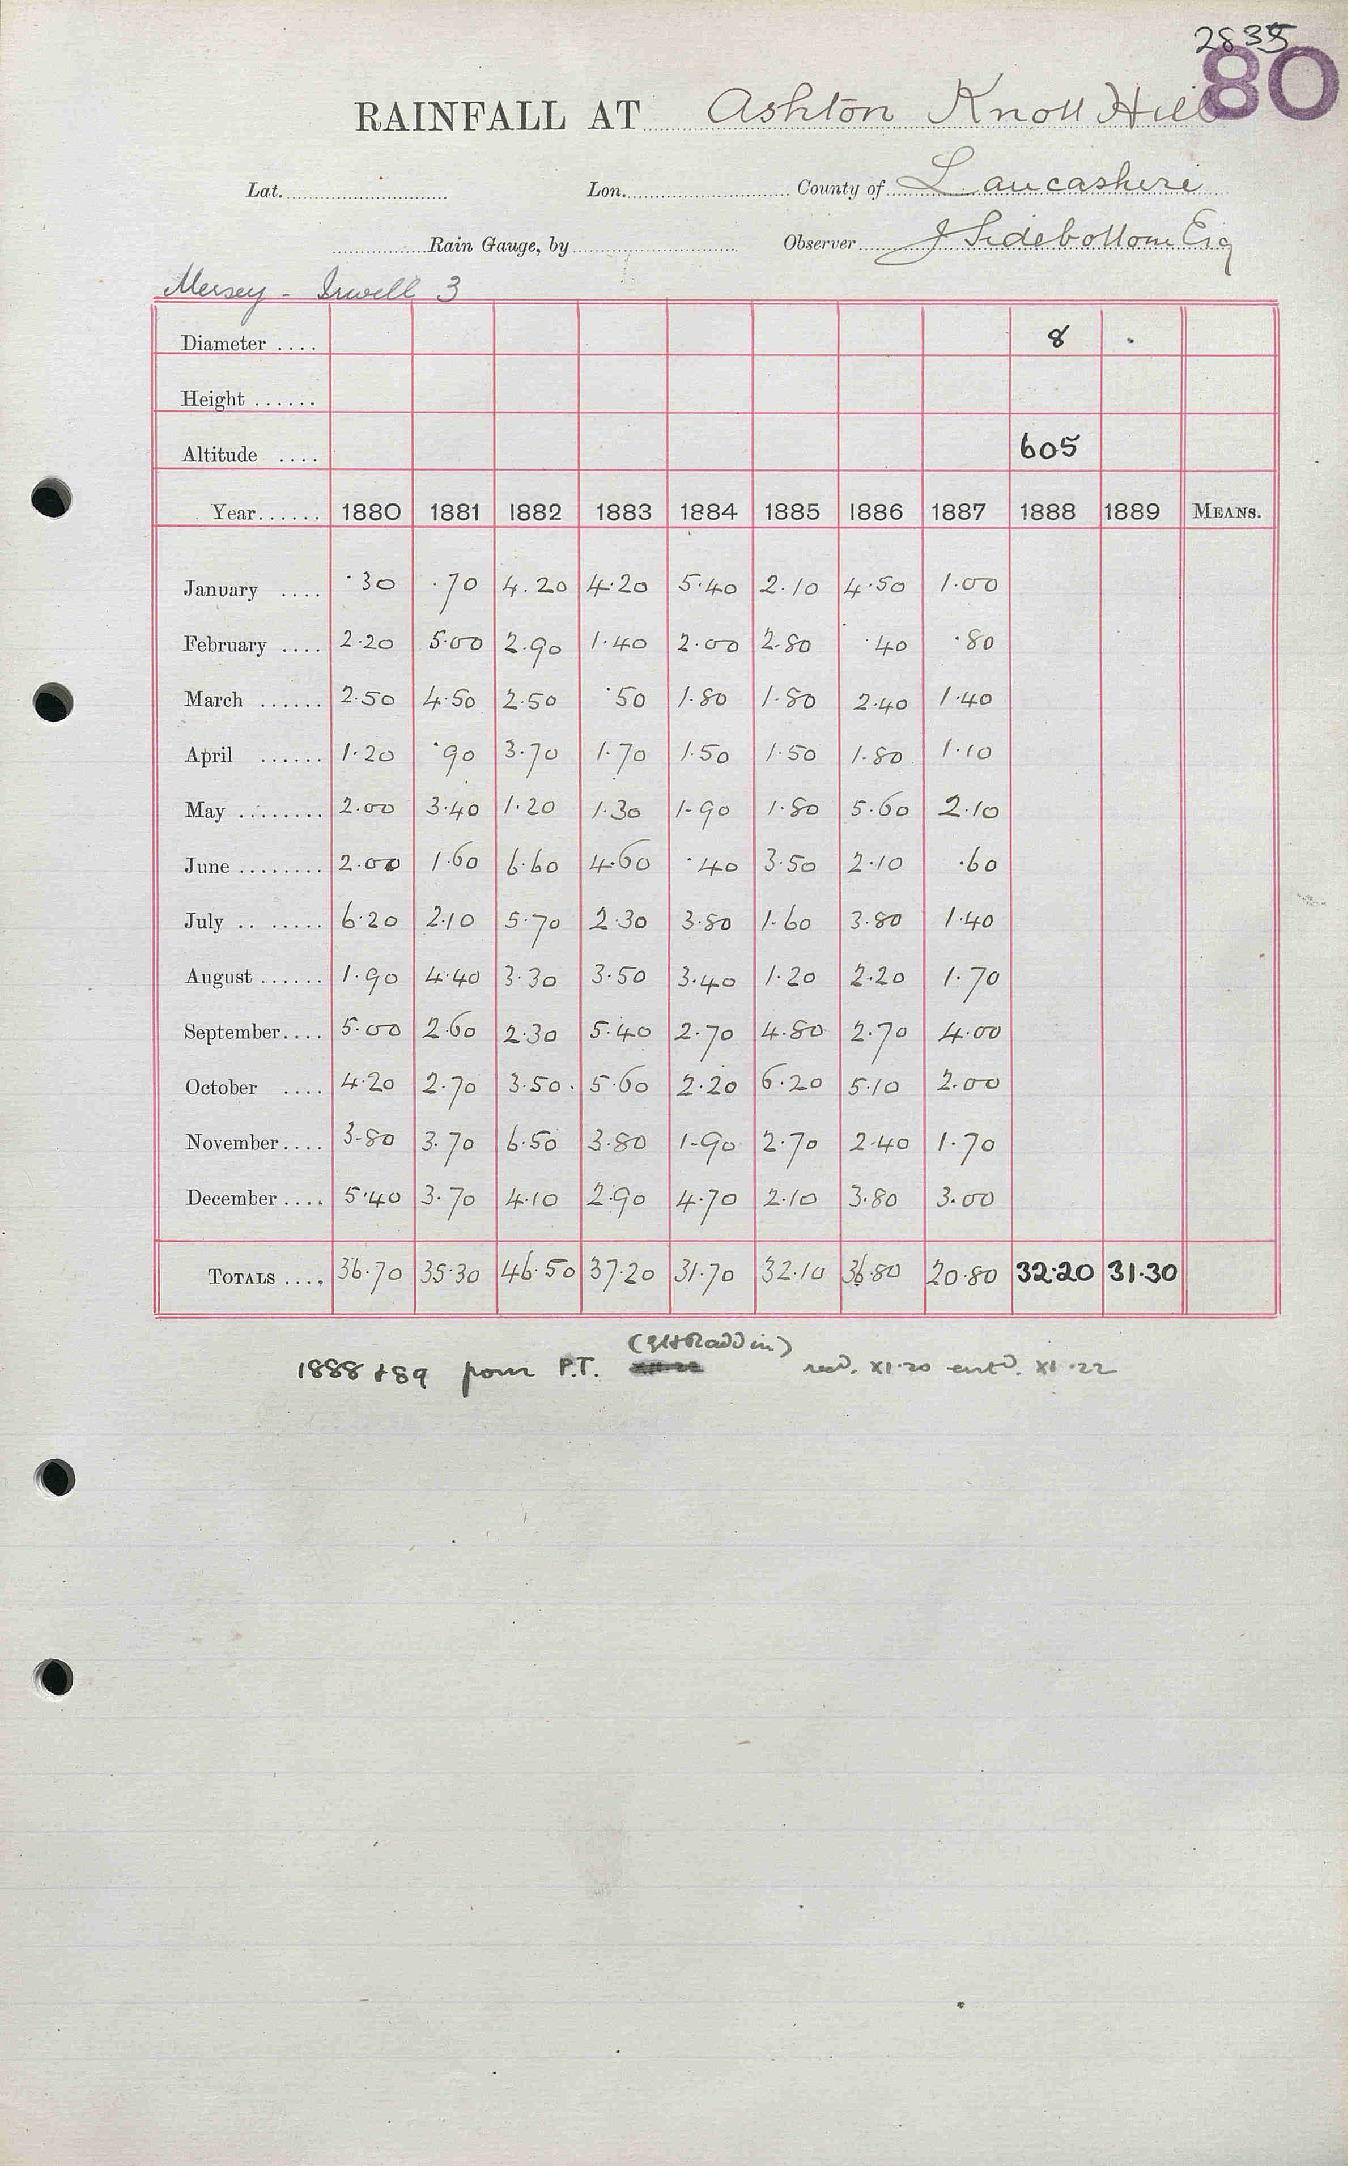 2835
80
RAINFALL AT Ashton Knott Hill
Lat. Lon. County of Lancashire
Rain Gauge, by Observer J Sidebottom Esq
Mersey - Irwell 3
Diameter .... 8 .
Height ......
Altitude .... 605
Year...... 1880 1881 1882 1883 1884 1885 1886 1887 1888 1889 MEANS.
January .... ·30 ·70 4.20 4·20 5·40 2·10 4·50 1·00
February .... 2·20 5·00 2·90 1·40 2·00 2·80 ·40 ·80
March ...... 2·50 4·50 2·50 ·50 1·80 1·80 2·40 1·40
April ...... 1·20 ·90 3·70 1·70 1·50 1·50 1·80 1·10
May ........ 2·00 3·40 1·20 1·30 1·90 1·80 5·60 2·10
June ........ 2·00 1·60 6·60 4·60 ·40 3·50 2·10 ·60
July .. ...... 6·20 2·10 5·70 2·30 3·80 1·60 3·80 1·40
August ...... 1·90 4·40 3·30 3·50 3·40 1·20 2·20 1·70
September.... 5·00 2·60 2·30 5·40 2·70 4·80 2·70 4·00
October .... 4·20 2·70 3·50 5·60 2·20 6·20 5·10 2·00
November.... 3·80 3·70 6·50 3·80 1·90 2·70 2·40 1·70
December .... 5·40 3·70 4·10 2·90 4·70 2·10 3·80 3·00
TOTALS .... 36·70 35·30 46·50 37·20 31·70 32·10 36·80 20·80 32·20 31·30
1888 & 89 from P.T. recd. XI·20 entd. XI·22